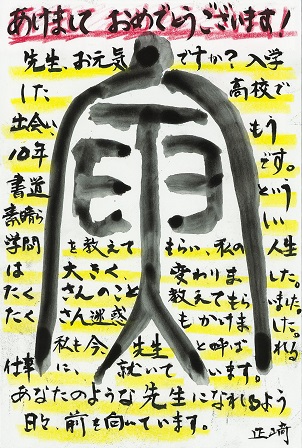 あけまして おめでとうございます!
先生、お元気ですか?入学
した 高校で
出会い、 もう
10年 です。
書道 という
素晴らしい
学問を教えてもらい、私の人生
は大きく、変わりました。
たくさんのこと教えてもらいました。
たくさん迷惑もかけました。
私も今、先生と呼ばれる
仕事に、就いています。
あなたのような先生になれるよう
日々、前を向いています。
正崎